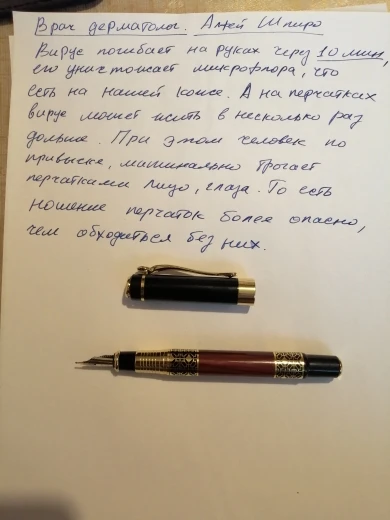 Врач дерматолог. Анжей Шпиро
Вирус погибает на руках через 10 мин,
его уничтожает микрофлора, что
есть на нашей коже. А на перчатках
вирус может жить в несколько раз
дольше. При этом человек по
привычке, машинально трогает
перчатками лицо, глаза. То есть
ношение перчаток более опасно,
чем обходиться без них.